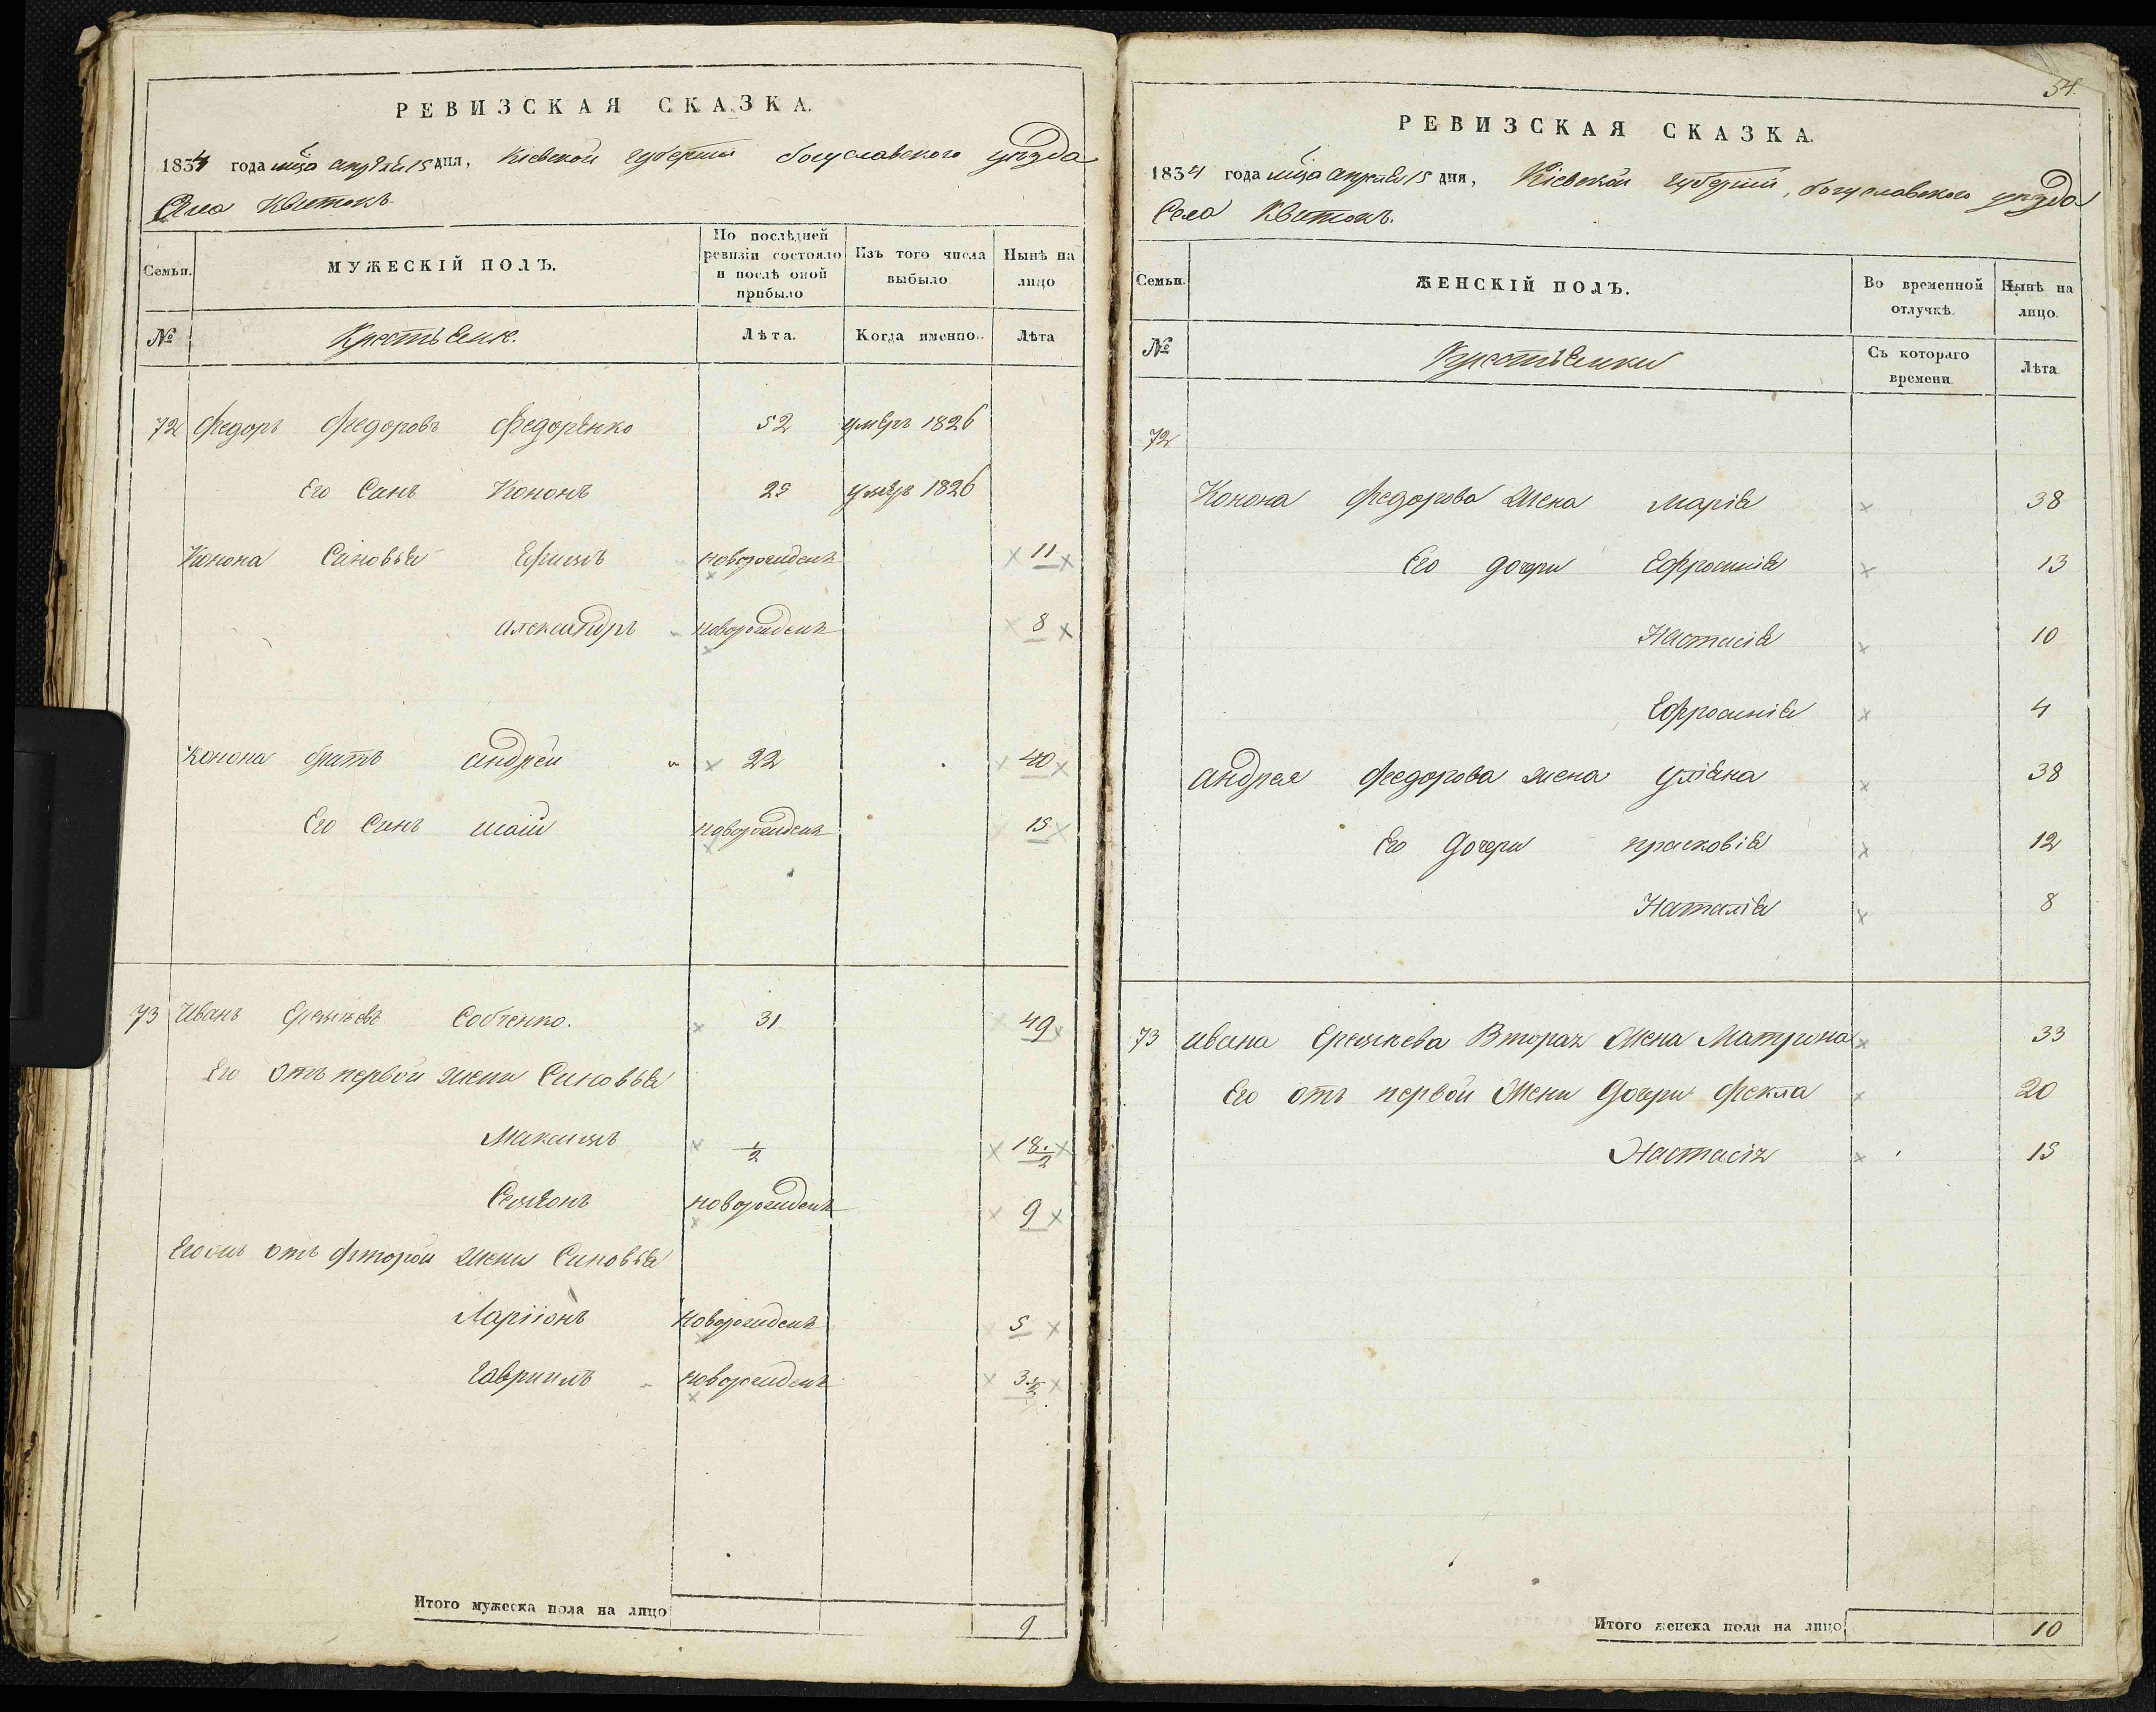 РЕВИЗСКАЯ СКАЗКА.
1834 года мца апреля 15 дня, Кіевской губерніи богуславского уезда
Села Квитокъ
Семьи.
МУЖЕСКІЙ ПОЛЪ.
По послѣдней ревизіи состояло и послѣ оной прибыло
Изъ того числа выбыло
Нынѣ на лицо
№
Крестьяне.
Лѣта.
Когда именно.
Лѣта
72 Федоръ Федоровъ Федоренко 52 умеръ 1826
Его Синъ Кононъ 25 умеръ 1826
Конона Синовья Ефимъ новорожденъ 11
александръ новорожденъ 8
Конона братъ андрей 22 40
Его Синъ новорожденъ 15
73 Иванъ Собченко. 31 49
Его отъ первой жены Синовья
Максимъ 1/2 18 1/2
Семіонъ новорожденъ 9
отъ фторой жены Синовья
Ларіонъ новорожденъ 5
Гавриилъ новорожденъ 3 1/2
Итого мужеска пола на лицо 9
54.
РЕВИЗСКАЯ СКАЗКА.
1834 года мца апреля 15 дня, Кіевской губерніи, богуславского уезда
Села Квитокъ.
Семьи.
ЖЕНСКІЙ ПОЛЪ.
Во временной отлучкѣ.
Нынѣ на лицо.
№
Крестьянки
Съ котораго времени
Лѣта
72
Конона федорова Жена Марія 38
Его дочери Ефросинія 13
Настасія 10
Ефросинія 4
андрея федорова жена уліяна 38
Его Дочери прасковія 12
Наталія 8
73 ивана Вторая Жена Матрона 33
Его отъ первой Жени Дочери Фекла 20
Настасія 15
Итого женска пола на лицо 10